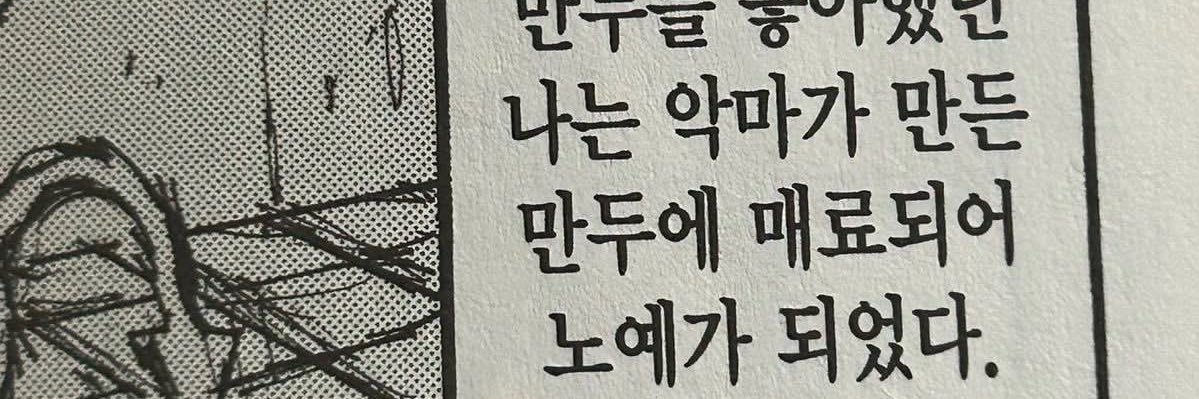 만두를 좋아했던
나는 악마가 만든
만두에 매료되어
노예가 되었다.